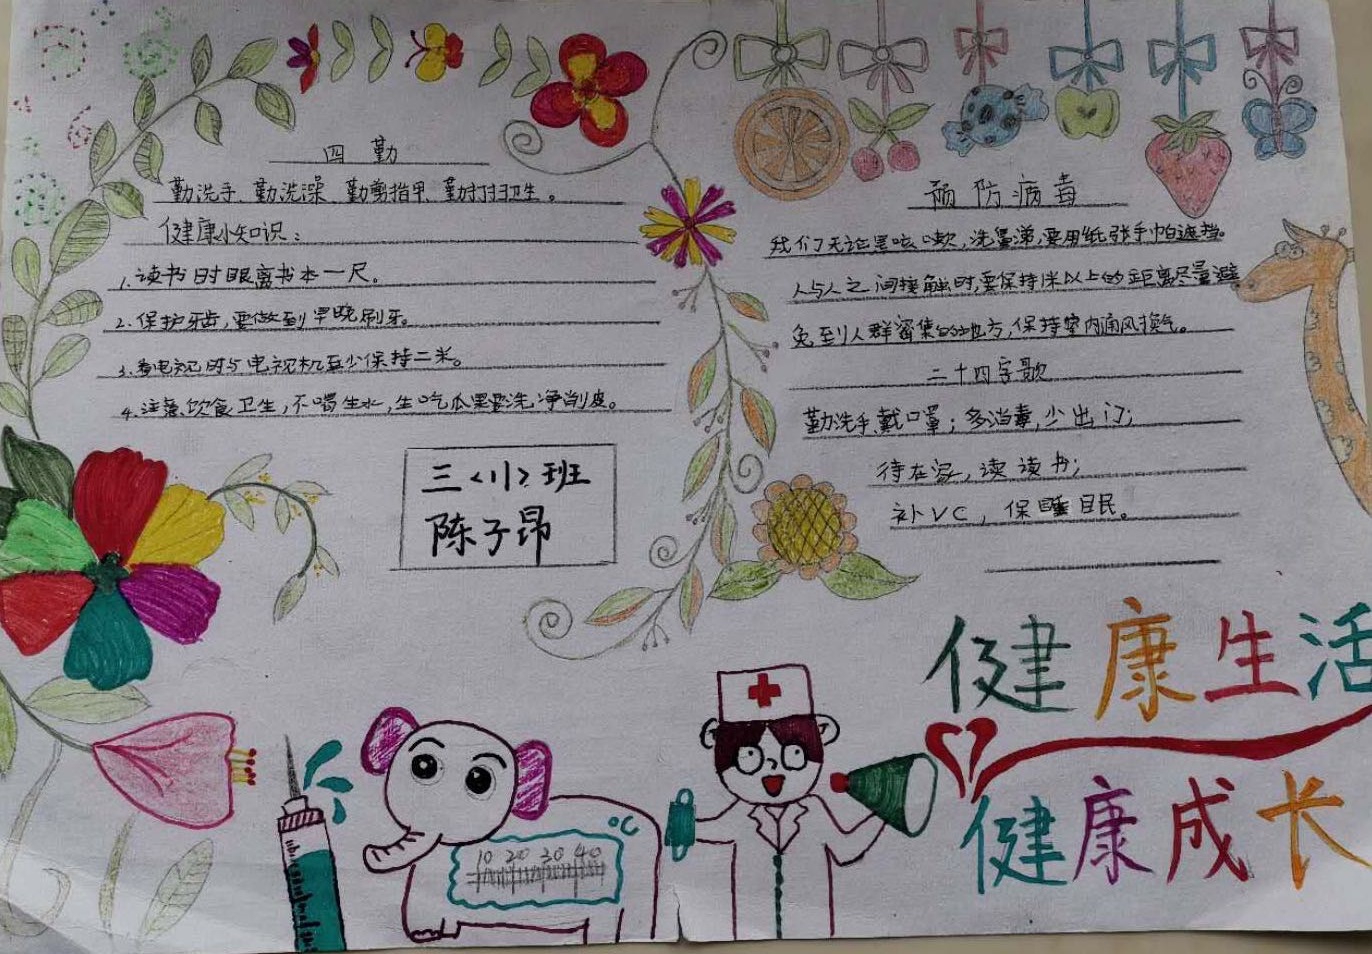 四 勤
勤洗手、勤洗澡、勤剪指甲、勤打扫卫生。
健康小知识：
1.读书时眼离书本一尺。
2.保护牙齿，要做到早晚刷牙。
3.看电视时与电视机至少保持二米。
4.注意饮食卫生，不喝生水，生吃瓜果要洗净削皮。
三<1>班
陈子昂
预防病毒
我们无论是咳嗽，洗鼻涕，要用纸张手帕遮挡。
人与人之间接触时，要保持1米以上的距离尽量避
免到人群密集的地方，保持室内通风换气。
二十四字歌
勤洗手、戴口罩；多消毒，少出门；
待在家，读读书；
补VC，保睡眠。
健康生活
健康成长
10 20 30 40
°C